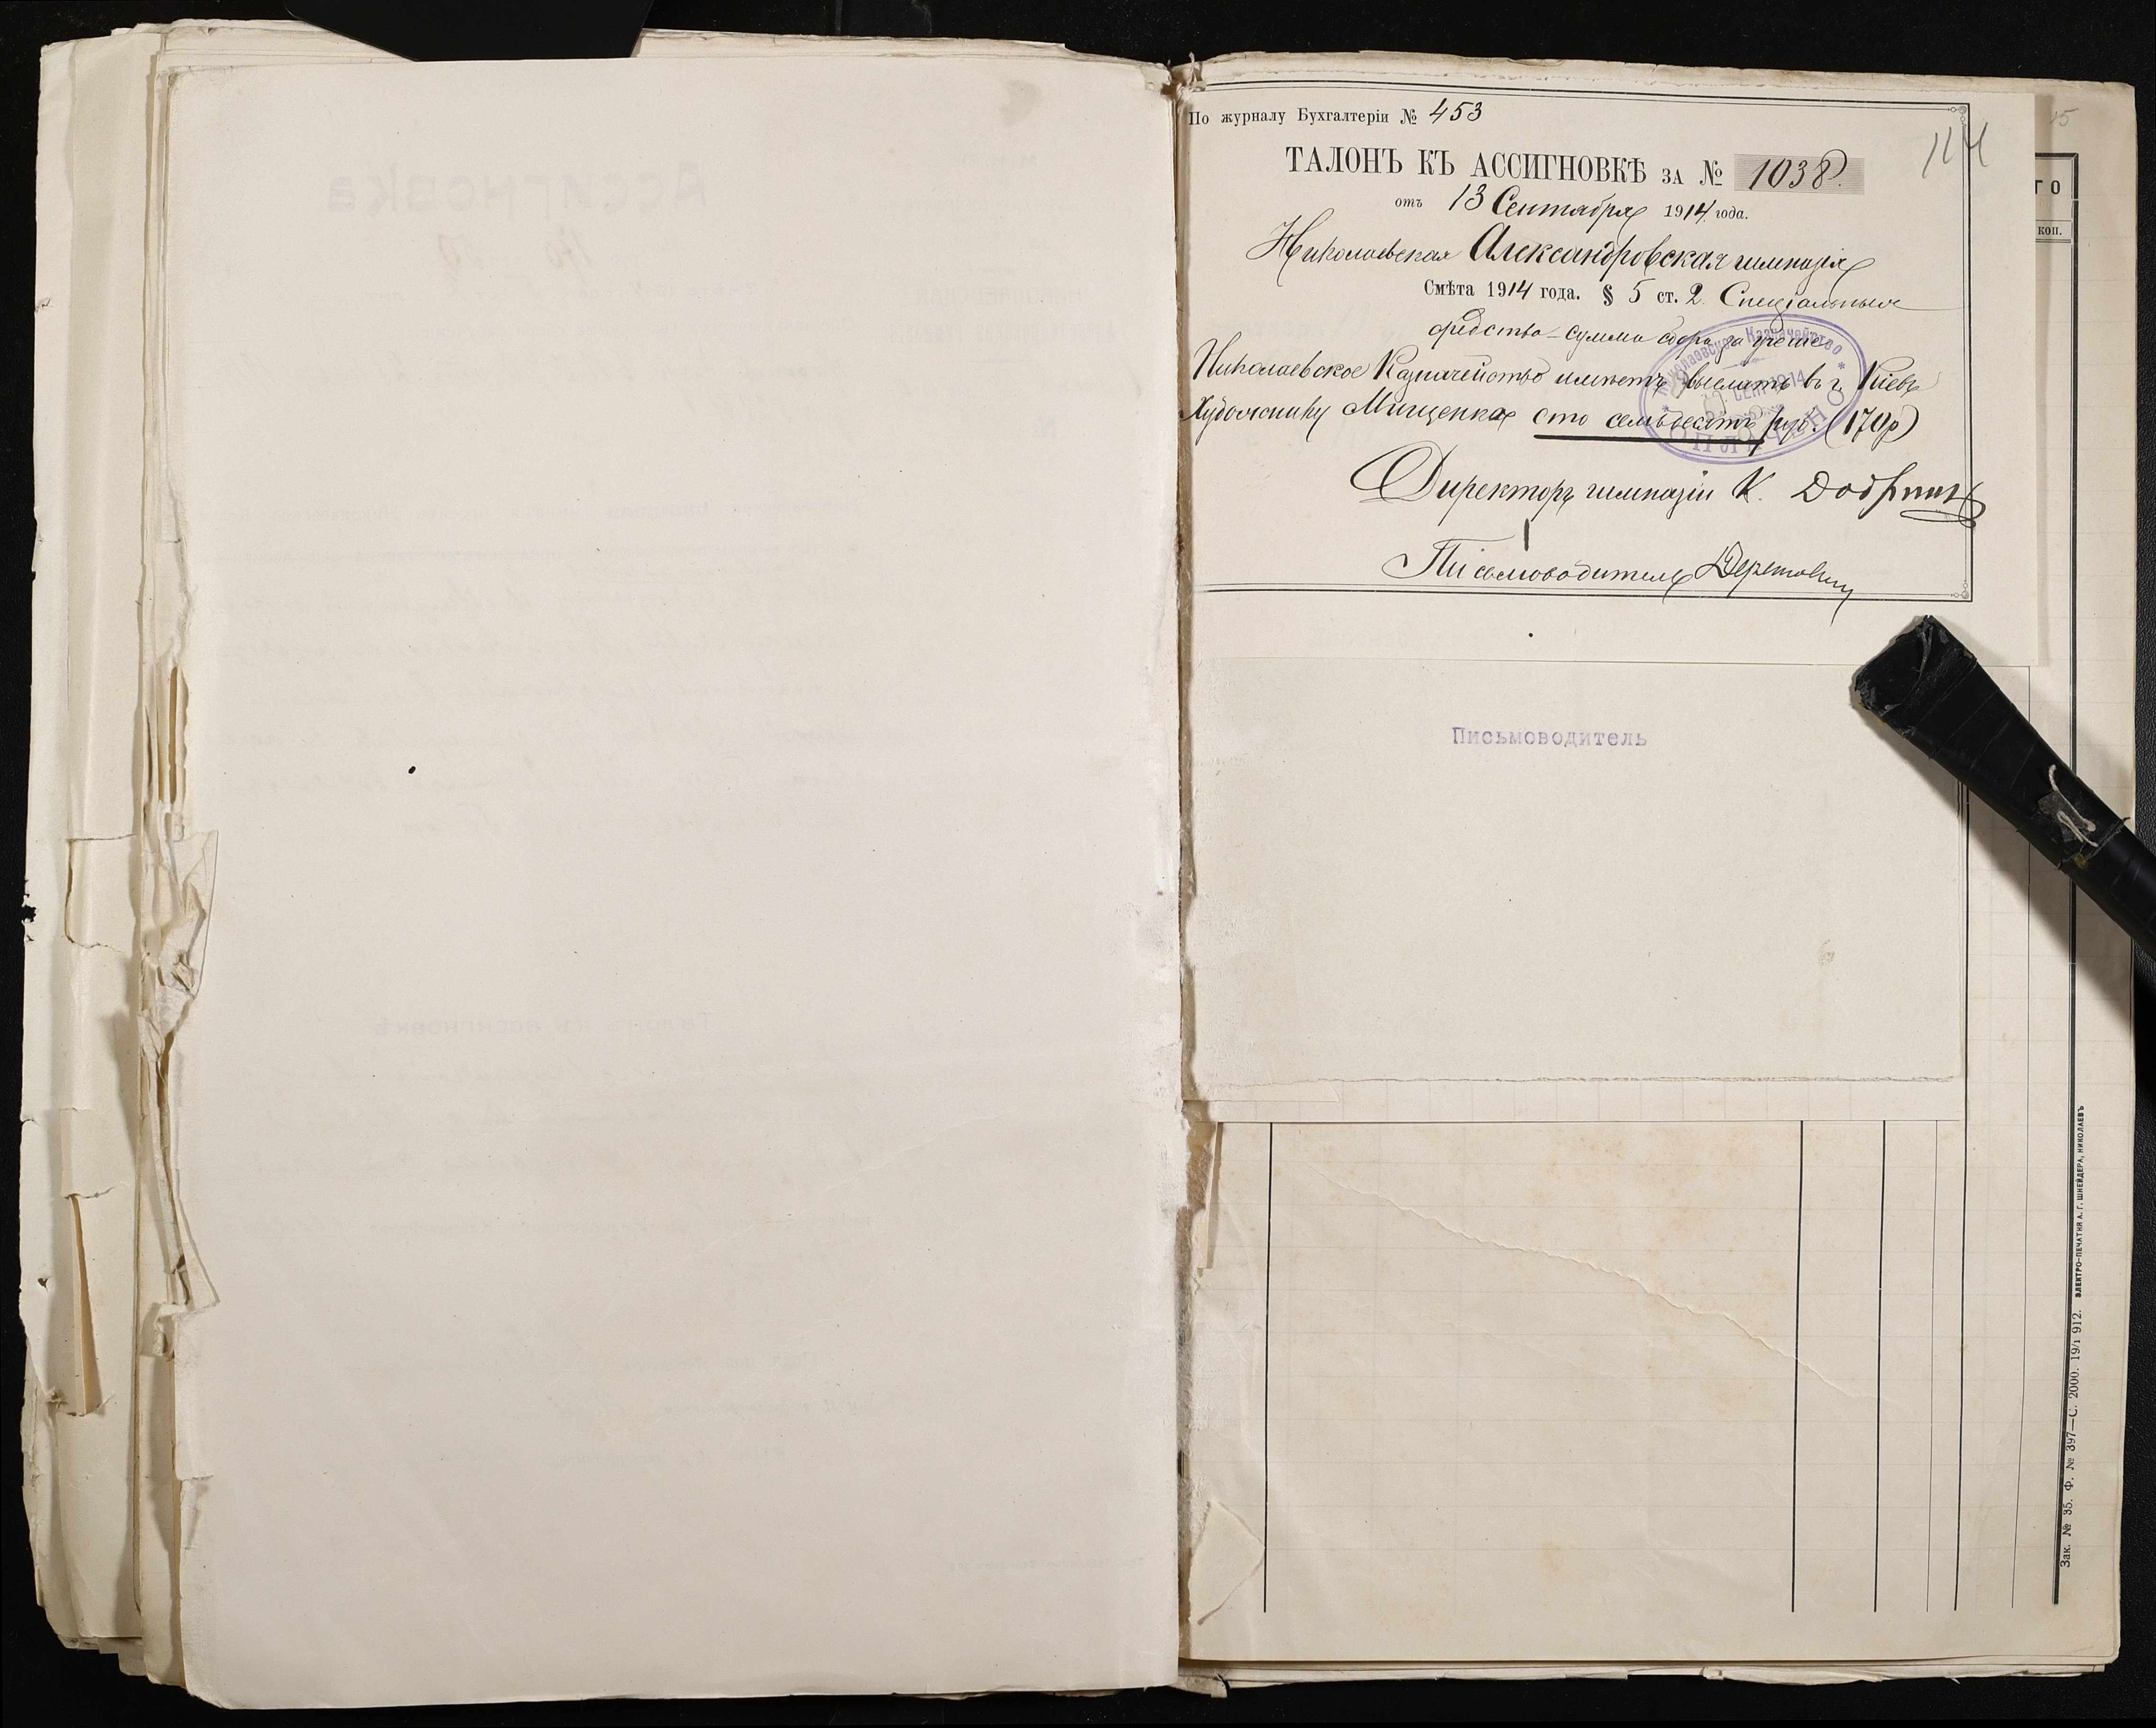 По журналу Бухгалтеріи № 453
114
ТАЛОНЪ КЪ АССИГНОВКѢ ЗА № 1038.
отъ 13 Сентября 1914 года.
Николаевская Александровская гимназія
Смѣта 1914 года. § 5 ст. 2. Спеціальныя
средства – сумма сбора за ученіе
Николаевское Казначейство имѣетъ выслать въ г. Кіевъ
Художнику Мищенка сто семьдесятъ руб. (170р)
Директоръ гимназіи К.
Письмоводитель
Николаевское Казначейство
СЕН. 1914
ОПЛАЧЕНО
Письмоводитель
ГО
коп.
Зак. № 35. Ф. № 397—С. 2000. 19/I 912. ЭЛЕКТРО-ПЕЧАТНЯ А. Г. ШНЕЙДЕРА, НИКОЛАЕВЪ